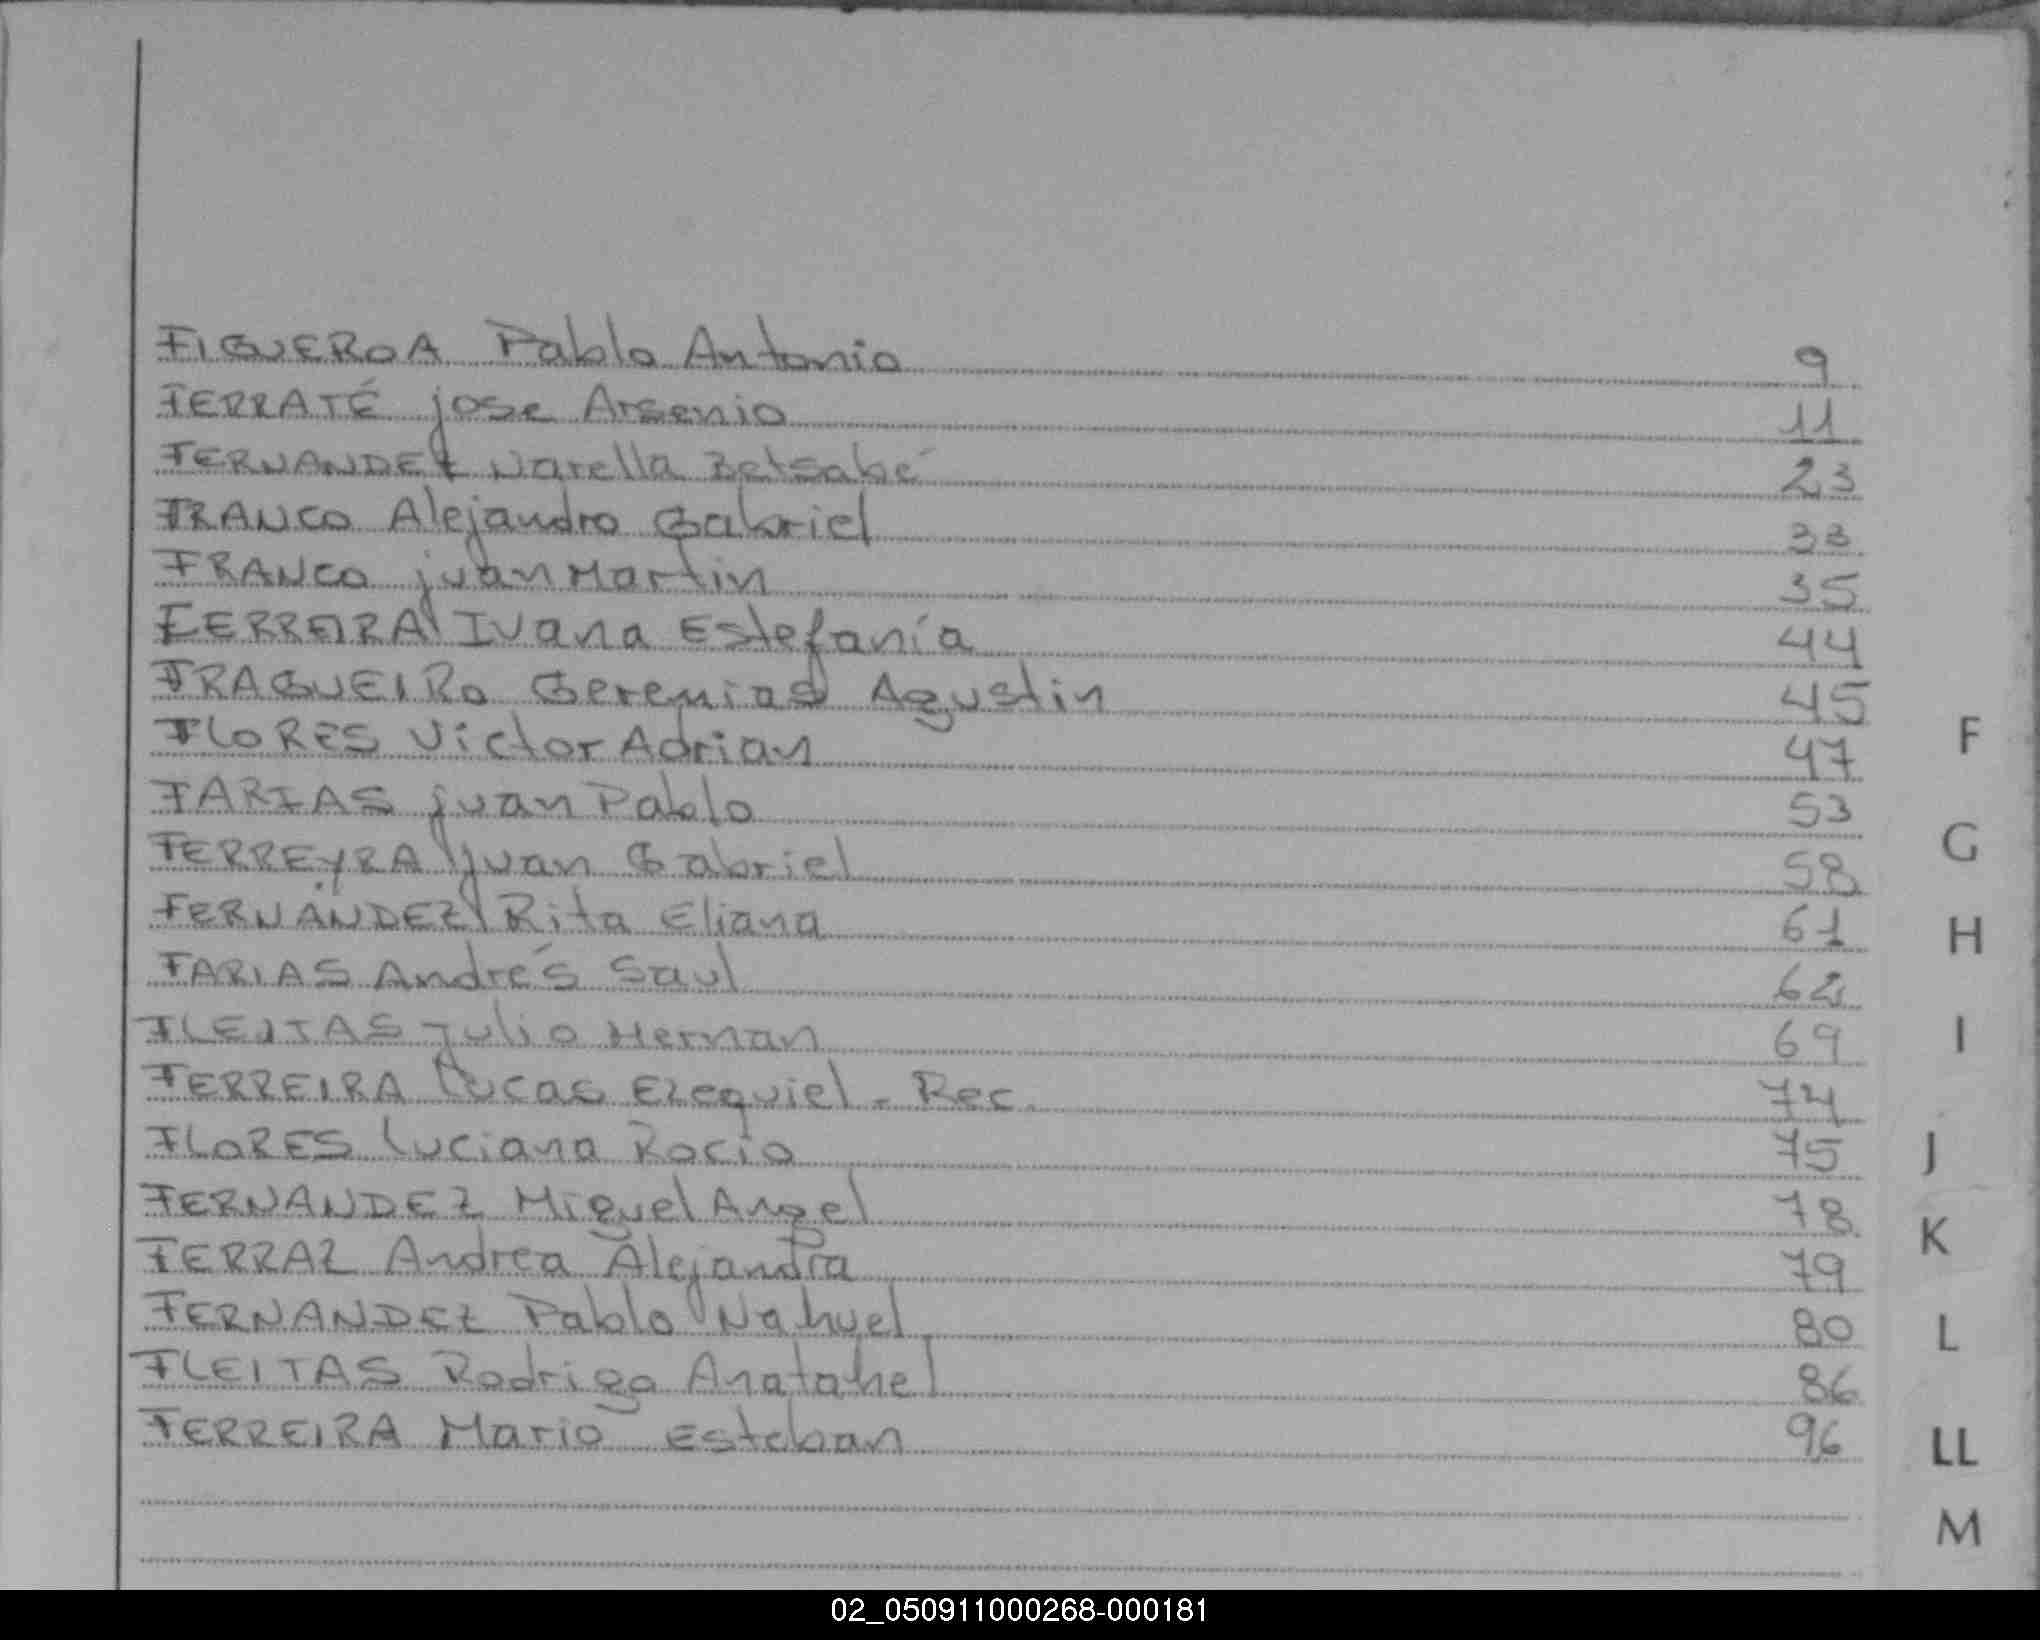 FIGUEROA Pablo Antonio 9
FERRATÉ jose Arsenio 11
FERNANDEZ Narella Betsabé 23
FRANCO Alejandro Gabriel 33
FRANCO juan Martin 35
FERREIRA Ivana Estefanía 44
FRAGUEIRO Geremias Agustin 45
FLORES Victor Adrian 47
FARIAS juan Pablo 53
FERREYRA juan Gabriel 58
FERNÁNDEZ Rita Eliana 61
FARIAS Andrés Saul 62
FLEITAS Julio Hernan 69
FERREIRA Lucas Ezequiel - Rec. 74
FLORES Luciana Rocio 75
FERNANDEZ Miguel Angel 78
FERRAZ Andrea Alejandra 79
FERNANDEZ Pablo Nahuel 80
FLEITAS Rodrigo Anatahel 86
FERREIRA Mario Esteban 96
F
G
H
I
J
K
L
LL
M
02_050911000268-000181